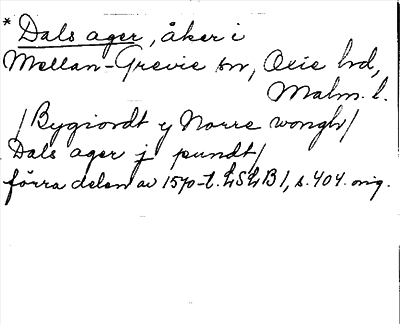 * Dals ager, åker i
Mellan-Grevie sn, Oxie hd,
Malm. l.
/Bygiordt y Norre wongh/
Dals ager j pundt/
förra delen av 1570-t. LSLB 1, s. 404. orig.